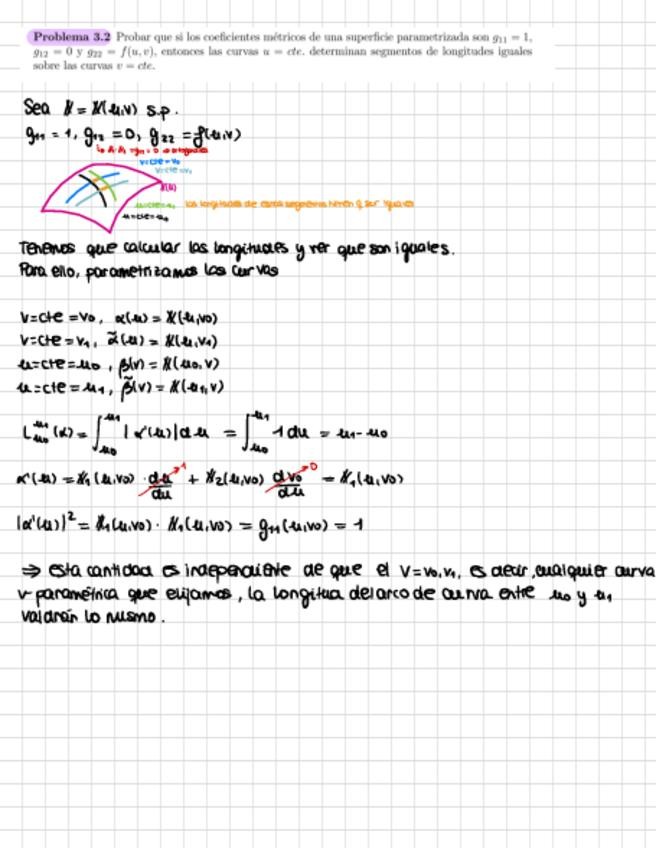 Problema 3.2 Probar que si los coeficientes métricos de una superficie parametrizada son g₁₁ = 1,
g₁₂ = 0 y g₂₂ = f(u, v), entonces las curvas u = cte. determinan segmentos de longitudes iguales
sobre las curvas v = cte.
Sea X = X(u,v) s.p.
g₁₁ = 1, g₁₂ = 0, g₂₂ = f(u,v)
v=cte=v₀
v=cte=v₁
u=cte=u₁
u=cte=u₀
las longitudes de estos segmentos tienen q ser iguales
Tenemos que calcular las longitudes y ver que son iguales.
Para ello, parametrizamos las curvas
v=cte=v₀, α(u) = X(u,v₀)
v=cte=v₁, α̃(u) = X(u,v₁)
u=cte=u₀, β(v) = X(u₀,v)
u=cte=u₁, β̃(v) = X(u₁,v)
L_{u₀}^{u₁}(α) = ∫_{u₀}^{u₁} |α'(u)| du = ∫_{u₀}^{u₁} 1 du = u₁-u₀
α'(u) = X₁(u,v₀) · du/du ↗1 + X₂(u,v₀) dv₀/du ↗0 = X₁(u,v₀)
|α'(u)|² = X₁(u,v₀) · X₁(u,v₀) = g₁₁(u,v₀) = 1
⇒ esta cantidad es independiente de que el v=v₀,v₁, es decir, cualquier curva
v-paramétrica que elijamos, la longitud del arco de curva entre u₀ y u₁
valdrán lo mismo.